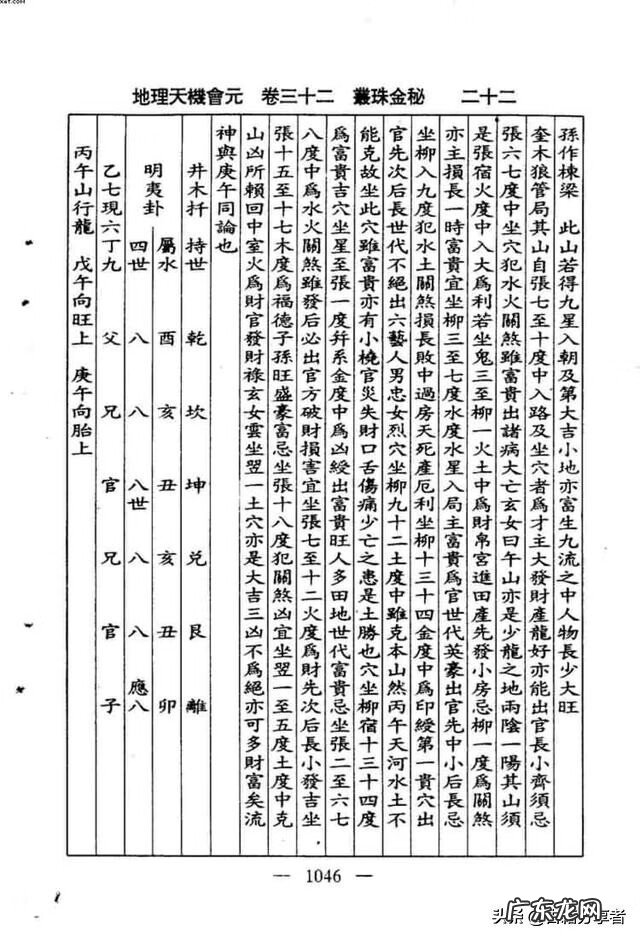 地理天機會元　卷三十二　叢珠金秘　二十二
孫作棟梁　此山若得九星入朝及第大吉小地亦富生九流之中人物長少大旺
奎木狼管局其山自張七至十度中入路及坐穴者爲才主大發財產龍好亦能出官長小齊須忌
張六七度中坐穴犯水火關煞雖富貴出諸病大亡玄女曰午山亦是少龍之地兩陰一陽其山須
是張宿火度中入大爲利若坐鬼三至柳一火土中爲財帛宮進田產先發小房忌柳一度爲關煞
亦主損長一時富貴宜坐柳三至七度水度水星入局主富貴爲官世代英豪出官先中小后長忌
坐柳入九度犯水土關煞損長敗中過房夭死產厄利坐柳十三十四金度中爲印綬第一貴穴出
官先次后長世代不絕出六藝人男忠女烈穴坐柳九十二土度中雖克本山然丙午天河水土不
能克故坐此穴雖富貴亦有小橈官災失財口舌傷痛少亡之患是土勝也穴坐柳宿十三十四度
爲富貴吉穴坐星至張一度幷系金度中爲凶綬出富貴旺人多田地世代富貴忌坐張二至六七
八度中爲水火關煞雖發后必出官方破財損害宜坐張七至十二火度爲財先次后長小發吉坐
張十五至十七木度爲福德子孫旺盛豪富忌坐張十八度犯關煞凶宜坐翌一至五度土度中克
山凶所賴回中室火爲財官發財祿玄女雲坐翌一土穴亦是大吉三凶不爲絕亦可多財富矣流
神與庚午同論也
井木扞　持世　乾　坎　坤　兌　艮　離
明夷卦
屬水　酉　亥　丑　亥　丑　卯
四世　八　八　八世　八　八　應八
乙七現六丁九　父　兄　官　兄　官　子
丙午山行龍　戊午向旺上　庚午向胎上
— 1046 —
广东龙网
头条
享者